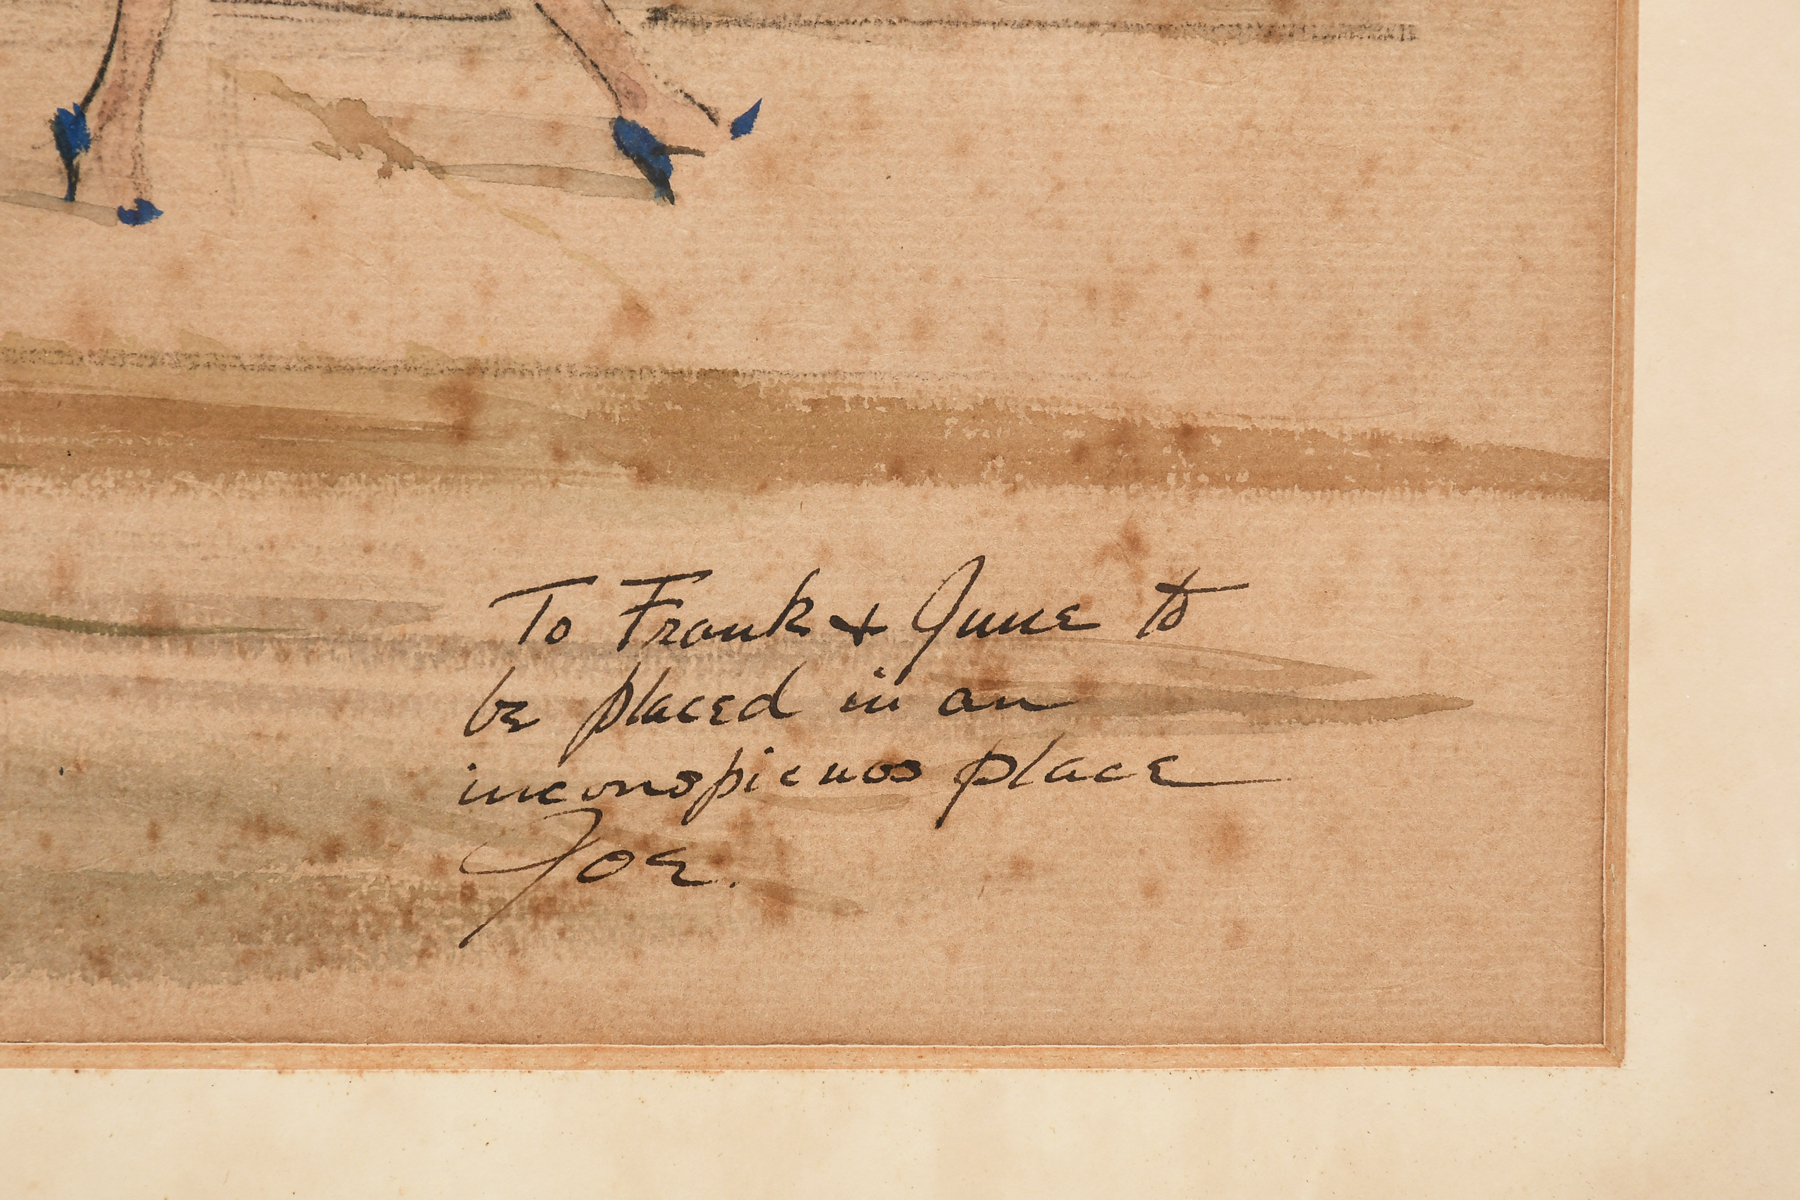 To Frank + June to
be placed in an
inconspicuos place
Joe.